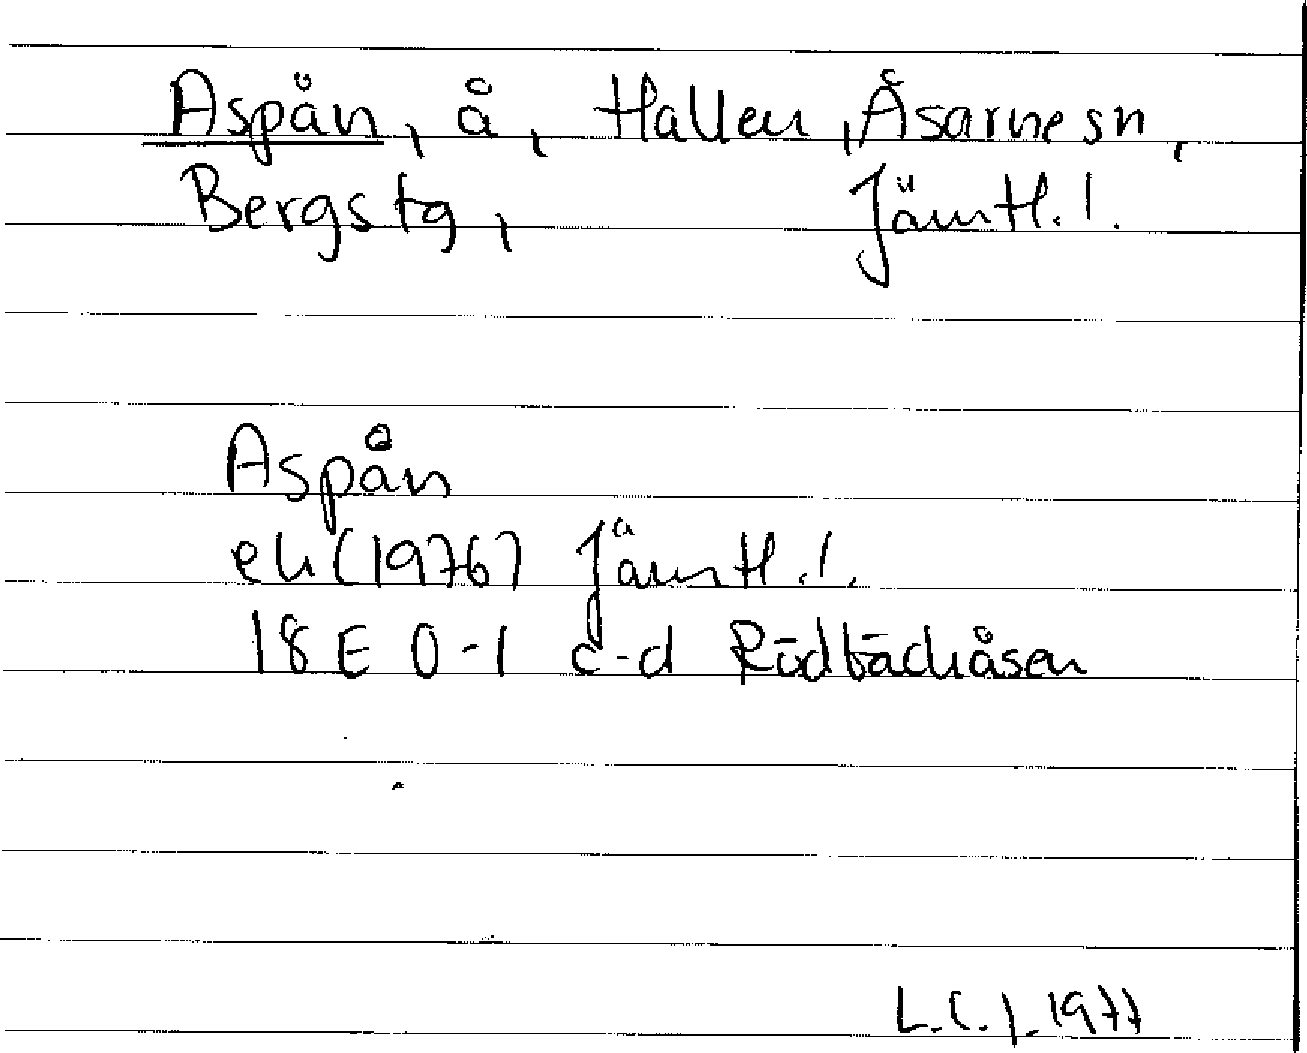 Aspån, å, Hallen, Åsarnesn,
Bergstg, Jämtl. l.
Aspån
ek (1976) Jämtl. l.
18E 0-1 c-d Rödbäckåsen
L.C.J. 1977